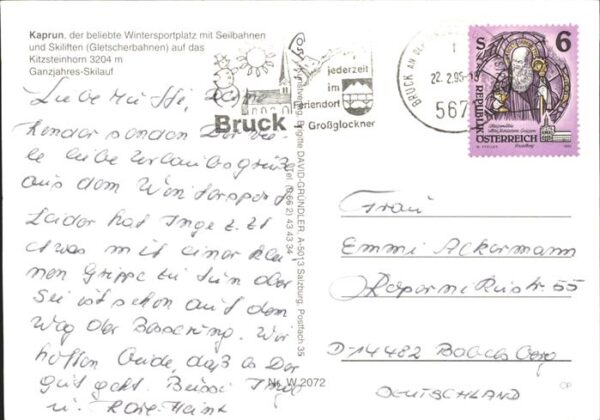 Kaprun, der beliebte Wintersportplatz mit Seilbahnen
und Skiliften (Gletscherbahnen) auf das
Kitzsteinhorn 3204 m
Ganzjahres-Skilauf
Liebe
Kinder senden Dir
liebe Urlaubsgrüße
aus dem Wintersport
Leider hat Inge z. Zt
etwas mit einer klei
nen Grippe zu tun aber
Sie ist schon auf dem
Weg der Besserung. Wir
hoffen beide, daß es Dir
gut geht. Bussi Inge
u.
Bruck
jederzeit
im
Feriendorf
Großglockner
BRUCK AN DER
22.2.95
567
6
REPUBLIK
ÖSTERREICH
Brigitte DAVID-GRÜNDLER, A-5013 Salzburg, Postfach 35
Tel. (0 66 2) 43 43 34
Nr. W 2072
Frau
Emmi Ackermann
D-14482 Babelsberg
DEUTSCHLAND